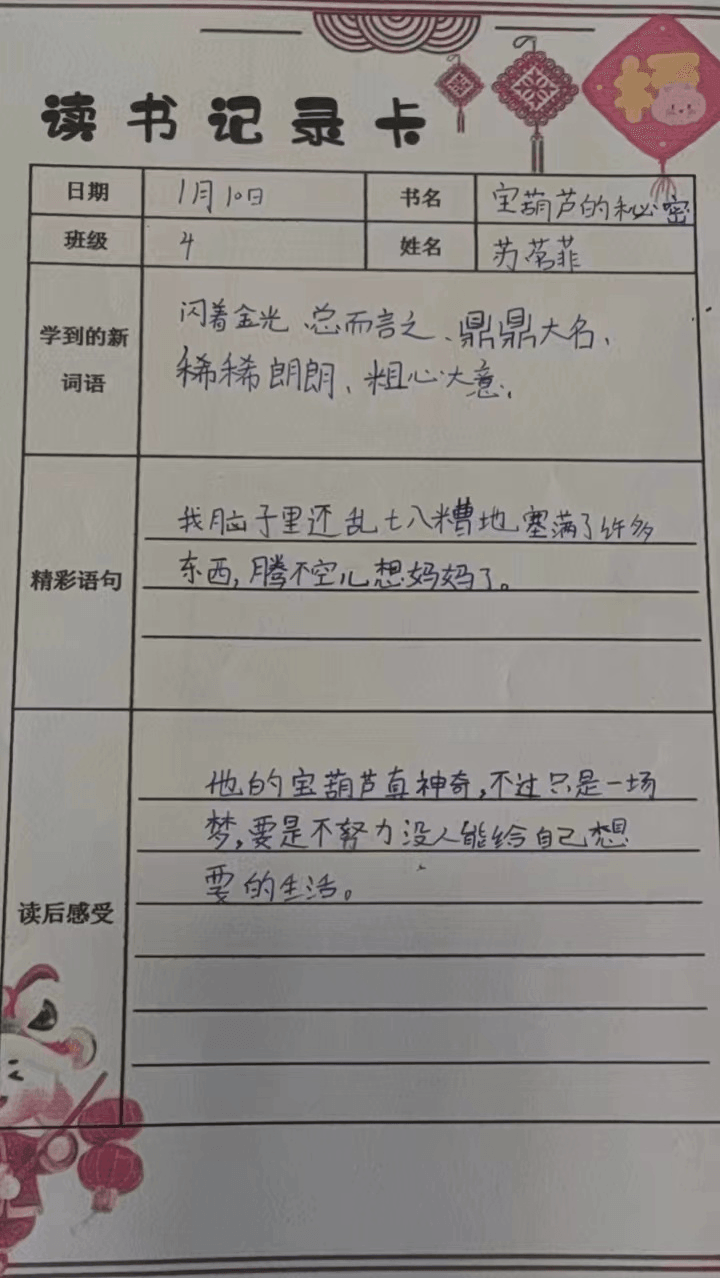 读书记录卡
日期 1月10日 书名 宝葫芦的秘密
班级 4 姓名 苏菲
学到的新
词语
闪着金光、总而言之、鼎鼎大名、
稀稀朗朗、粗心大意、
精彩语句
我脑子里还乱七八糟地塞满了许多
东西,腾不空儿想妈妈了。
读后感受
他的宝葫芦真神奇,不过只是一场
梦,要是不努力没人能给自己想
要的生活。